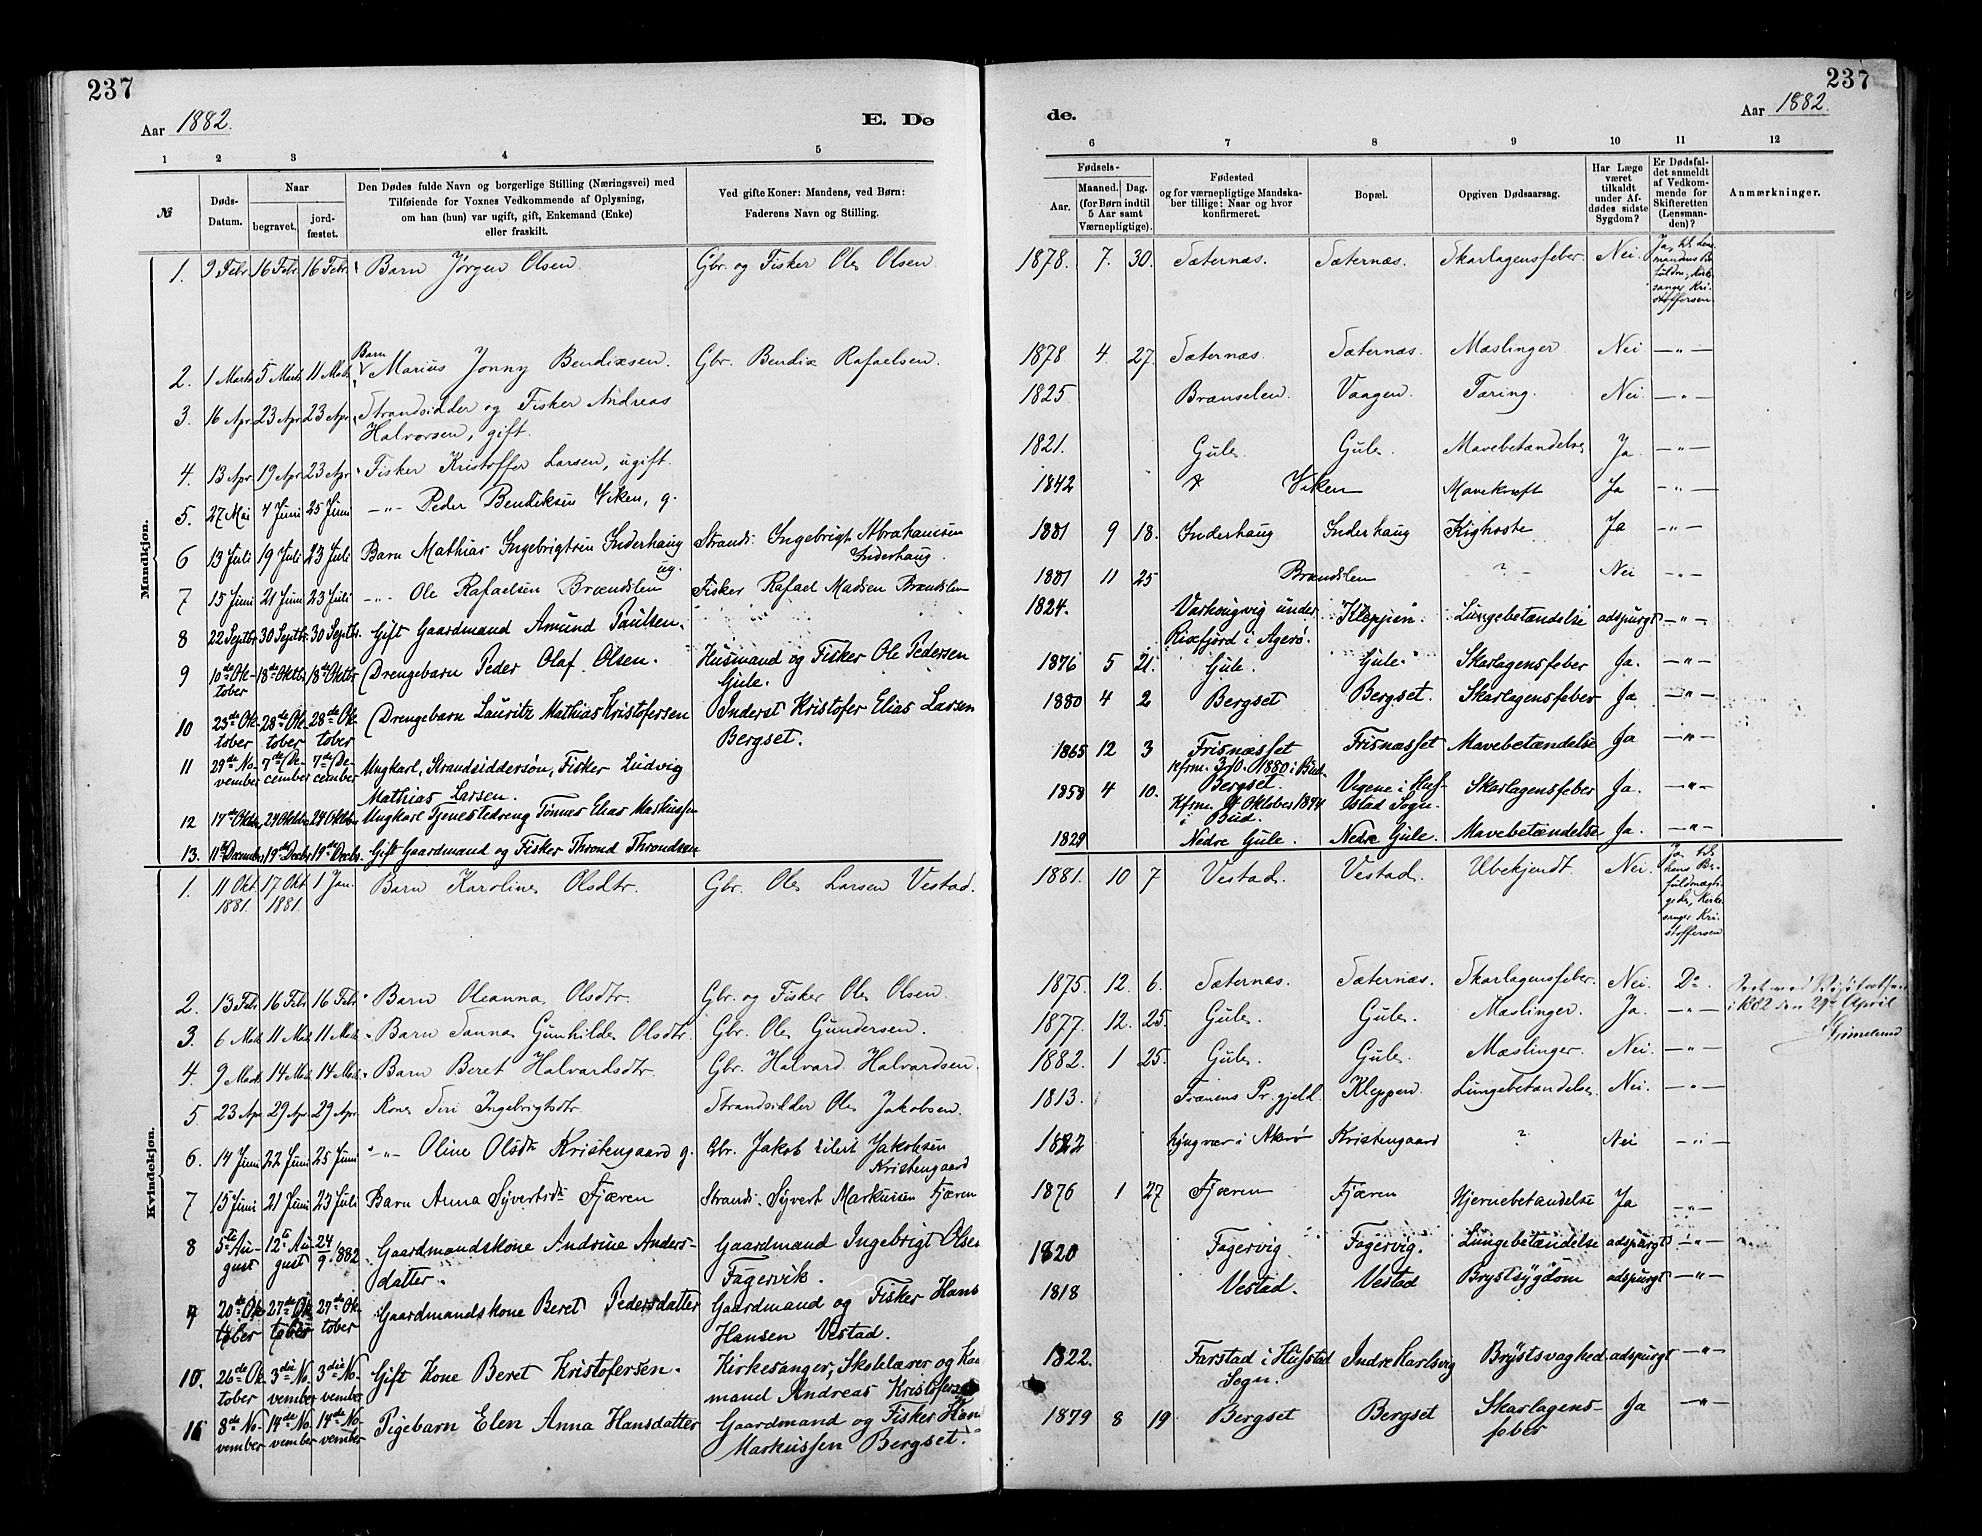 237
Aar 1882.
E. Dø
1 2 3 4 5
№
Døds-Datum.
Naar
begravet.
jord-fæstet.
Den Dødes fulde Navn og borgerlige Stilling (Næringsvei) med
Tilføiende for Voxnes Vedkommende af Oplysning,
om han (hun) var ugift, gift, Enkemand (Enke)
eller fraskilt.
Ved gifte Koner: Mandens, ved Børn:
Faderens Navn og Stilling.
Mandkjøn.
1. 9 Febr 16 Febr 16 Febr. Barn Jørgen Olsen. Gbr. og Fisker Ole Olsen.
Barn
2. 1 Marts 5 Marts 11 Mars Marius Jonny Bendixsen. Gbr. Bendix Rafaelsen.
3. 16 Apr 23 Apr 23 Apr Strandsidder og Fisker Andreas
Halvorsen, gift.
4. 13 Apr 19 Apr 23 Apr Fisker Kristoffer Larsen, ugift.
5. 27 Mai 4 Juni 25 Juni –"– Peder Bendiksen Viken, g.
6 13 Juli 19 Juli 23 Juli Barn Mathias Ingebrigtsen Inderhaug ug. Strands. Ingebrigt Abrahamsen
Inderhaug.
7 15 Juni 21 Juni 23 Juli –"– Ole Rafaelsen Brændslen Fisker Rafael Madsen Brændslen
8 22 Septbr 30 Septbr. 30 Septbr. Gift Gaardmand Amund Paulsen.
9 10de Oktober 18de Oktbr. 18de Oktbr Drengebarn Peder Olaf Olsen. Husmand og Fisker Ole Pedersen
Gule.
10 23de Oktober 28de Oktober 28de Oktober Drengebarn Lauritz Mathias Kristofersen Inderst Kristofer Elias Larsen
Bergset.
11 29de November 7de December 7de December Ungkarl, Strandsiddersøn, Fisker Ludvig
Mathias Larsen.
12 17de Oktbr 24 Oktbr 24 Oktbr. Ungkarl Tjenestedreng Tønnes Elias Markussen
13. 11te December 19de Decbr 19de Decbr. Gift Gaardmand og Fisker Thrond Throndsen
Kvindekjøn.
1. 11 Okt 1881 17 Okt 1881 1 Jan. Barn Karoline Olsdtr. Gbr. Ole Larsen Vestad.
2. 13 Febr 16 Febr 16 Febr Barn Oleanna Olsdtr. Gbr. og Fisker Ole Olsen.
3. 6 Mars 11 Mars 11 Mars Barn Sanna Gunhilde Olsdtr. Gbr. Ole Gundersen.
4. 9 Mars 14 Mars 14 Mars Barn Beret Halvardsdtr. Gbr. Halvard Halvardsen.
5 23 Apr 29 Apr 29 Apr. Kone Seri Ingebrigtsdtr. Strandsidder Ole Jakobsen.
6. 14 Juni 22 Juni 25 Juni –"– Oline Olsdtr Kristengaard g. Gbr. Jakob Eilert Jakobsen
Kristengaard
7 15 Juni 21 Juni 23 Juli Barn Anna Syvertsdtr Fjæren Strands. Syvert Markussen Fjæren
8 5te August 12te August 24/9 1882 Gaardmandskone Andrine Andersdatter. Gaardmand Ingebrigt Olsen
Fagervik.
9 20de Oktober 27de Oktober 27de Oktober Gaardmandskone Beret Pedersdatter Gaardmand og Fisker Hans
Hansen Vestad.
10. 26de Oktober 3die November 3die November Gift Kone Beret Kristofersen. Kirkesanger, Skolelærer og
mand Andreas Kristofersen
11 8de November 14de November 14de November Pigebarn Elen Anna Hansdatter Gaardmand og Fisker Hans
Markussen Bergset.
237
de.
Aar 1882.
6 7 8 9 10 11 12
Fødsels-
Aar.
Maaned. Dag.
(for Børn indtil
5 Aar samt
Værnepligtige).
Fødested
og for værnepligtige Mandska-
ber tillige: Naar og hvor
konfirmeret.
Bopæl.
Opgiven Dødsaarsag.
Har Læge
været
tilkaldt
under Af-
dødes sidste
Sygdom?
Er Dødsfal-
det anmeldt
af Vedkom-
mende for
Skifteretten
(Lensman-
den)?
Anmærkninger.
1878. 7. 30. Sæternæs. Sæternæs. Skarlagensfeber Nei Ja, til Lens-
mandens
fuldm. Kirke-
sanger Kri-
stoffersen
1878 4. 27. Sæternæs. Sæternæs. Mæslinger Nei –"–
1825 Brænselen Vaagen. Tæring. Nei –"–
1821. Gule. Gule. Mavebetændelse Ja –"–
1842 Viken Mavekræft Ja –"–
1881 9 18. Inderhaug Inderhaug Kighoste Ja –"–
1881 11 25 Brændslen ? – Nei –"–
1824. under
i Agerø. Kleppen. Lungebetændelse adspurgt –"–
1876 5 21. Gule. Gule. Skarlagensfeber Ja. –"–
1880 4 2 Bergset Bergset. Skarlagensfeber Ja –"–
1865 12 3 Frisnæsset
kfrm. 3/10. 1880 i Bud. Frisnæsset Mavebetændelse Ja –"–
1858 4 10. Bergset.
Kfrm. Oktober 1874
i Bud. i Huf-
stad Sogn. Skarlagensfeber Ja. –"–
1829 Nedre Gule. Nedre Gule. Mavebetændelse Ja. –"–
1881. 10 7 Vestad. Vestad. Ubekjendt. Nei. Ja, til
hans Be-
fuldmægti-
gede, Kirke-
sanger Kri-
stoffersen
1875. 12. 6. Sæternæs. Sæternæs. Skarlagensfeber. Nei. Do.
i 1882 den 29de April
1877. 12. 25. Gule. Gule. Mæslinger. Ja. –"–
1882 1 25. Gule. Gule. Mæslinger. Nei. –"–
1813. Frænens Pr.gjeld. Kleppen. Lungebetændelse Nei. –"–
1822 Lyngvær i Akerø Kristengaard ? Nei –"–
1876 1 27 Fjæren Fjæren Hjernebetændelse Ja –"–
1820 Fagervig. Fagervig. Lungebetændelse adspurgt –"–
1818 Vestad. Vestad Brystsygdom adspurgt –"–
1822. Farstad i Hufstad
Sogn. Indre Harlsvig Brystsvaghed adspurgt –"–
1879 8 19 Bergset Bergset Skarlagens-
feber Ja –"–